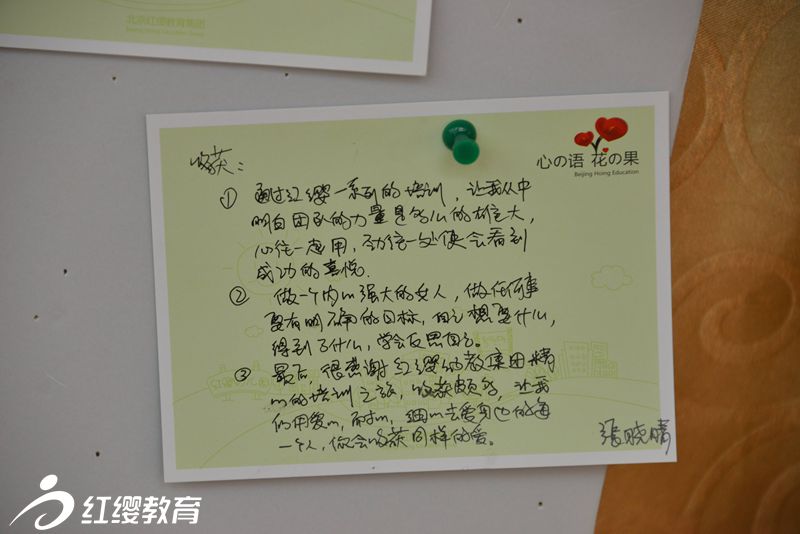 北京红缨教育集团
心の语 花の果
Beijing Hoing Education
收获：
① 通过红缨一系列的培训，让我从中
明白团队的力量是多么的雄大，
心往一起用，劲往一处使会看到
成功的喜悦.
② 做一个内心强大的女人，做任何事
要有明确的目标，自己想要什么，
得到了什么，学会反思自己。
③ 最后，很感谢红缨幼教集团精
心的培训之旅，收获颇多，让我
们用爱心，耐心，细心去爱身边的每
一个人，你会收获同样的爱。
張晓晴
红缨教育